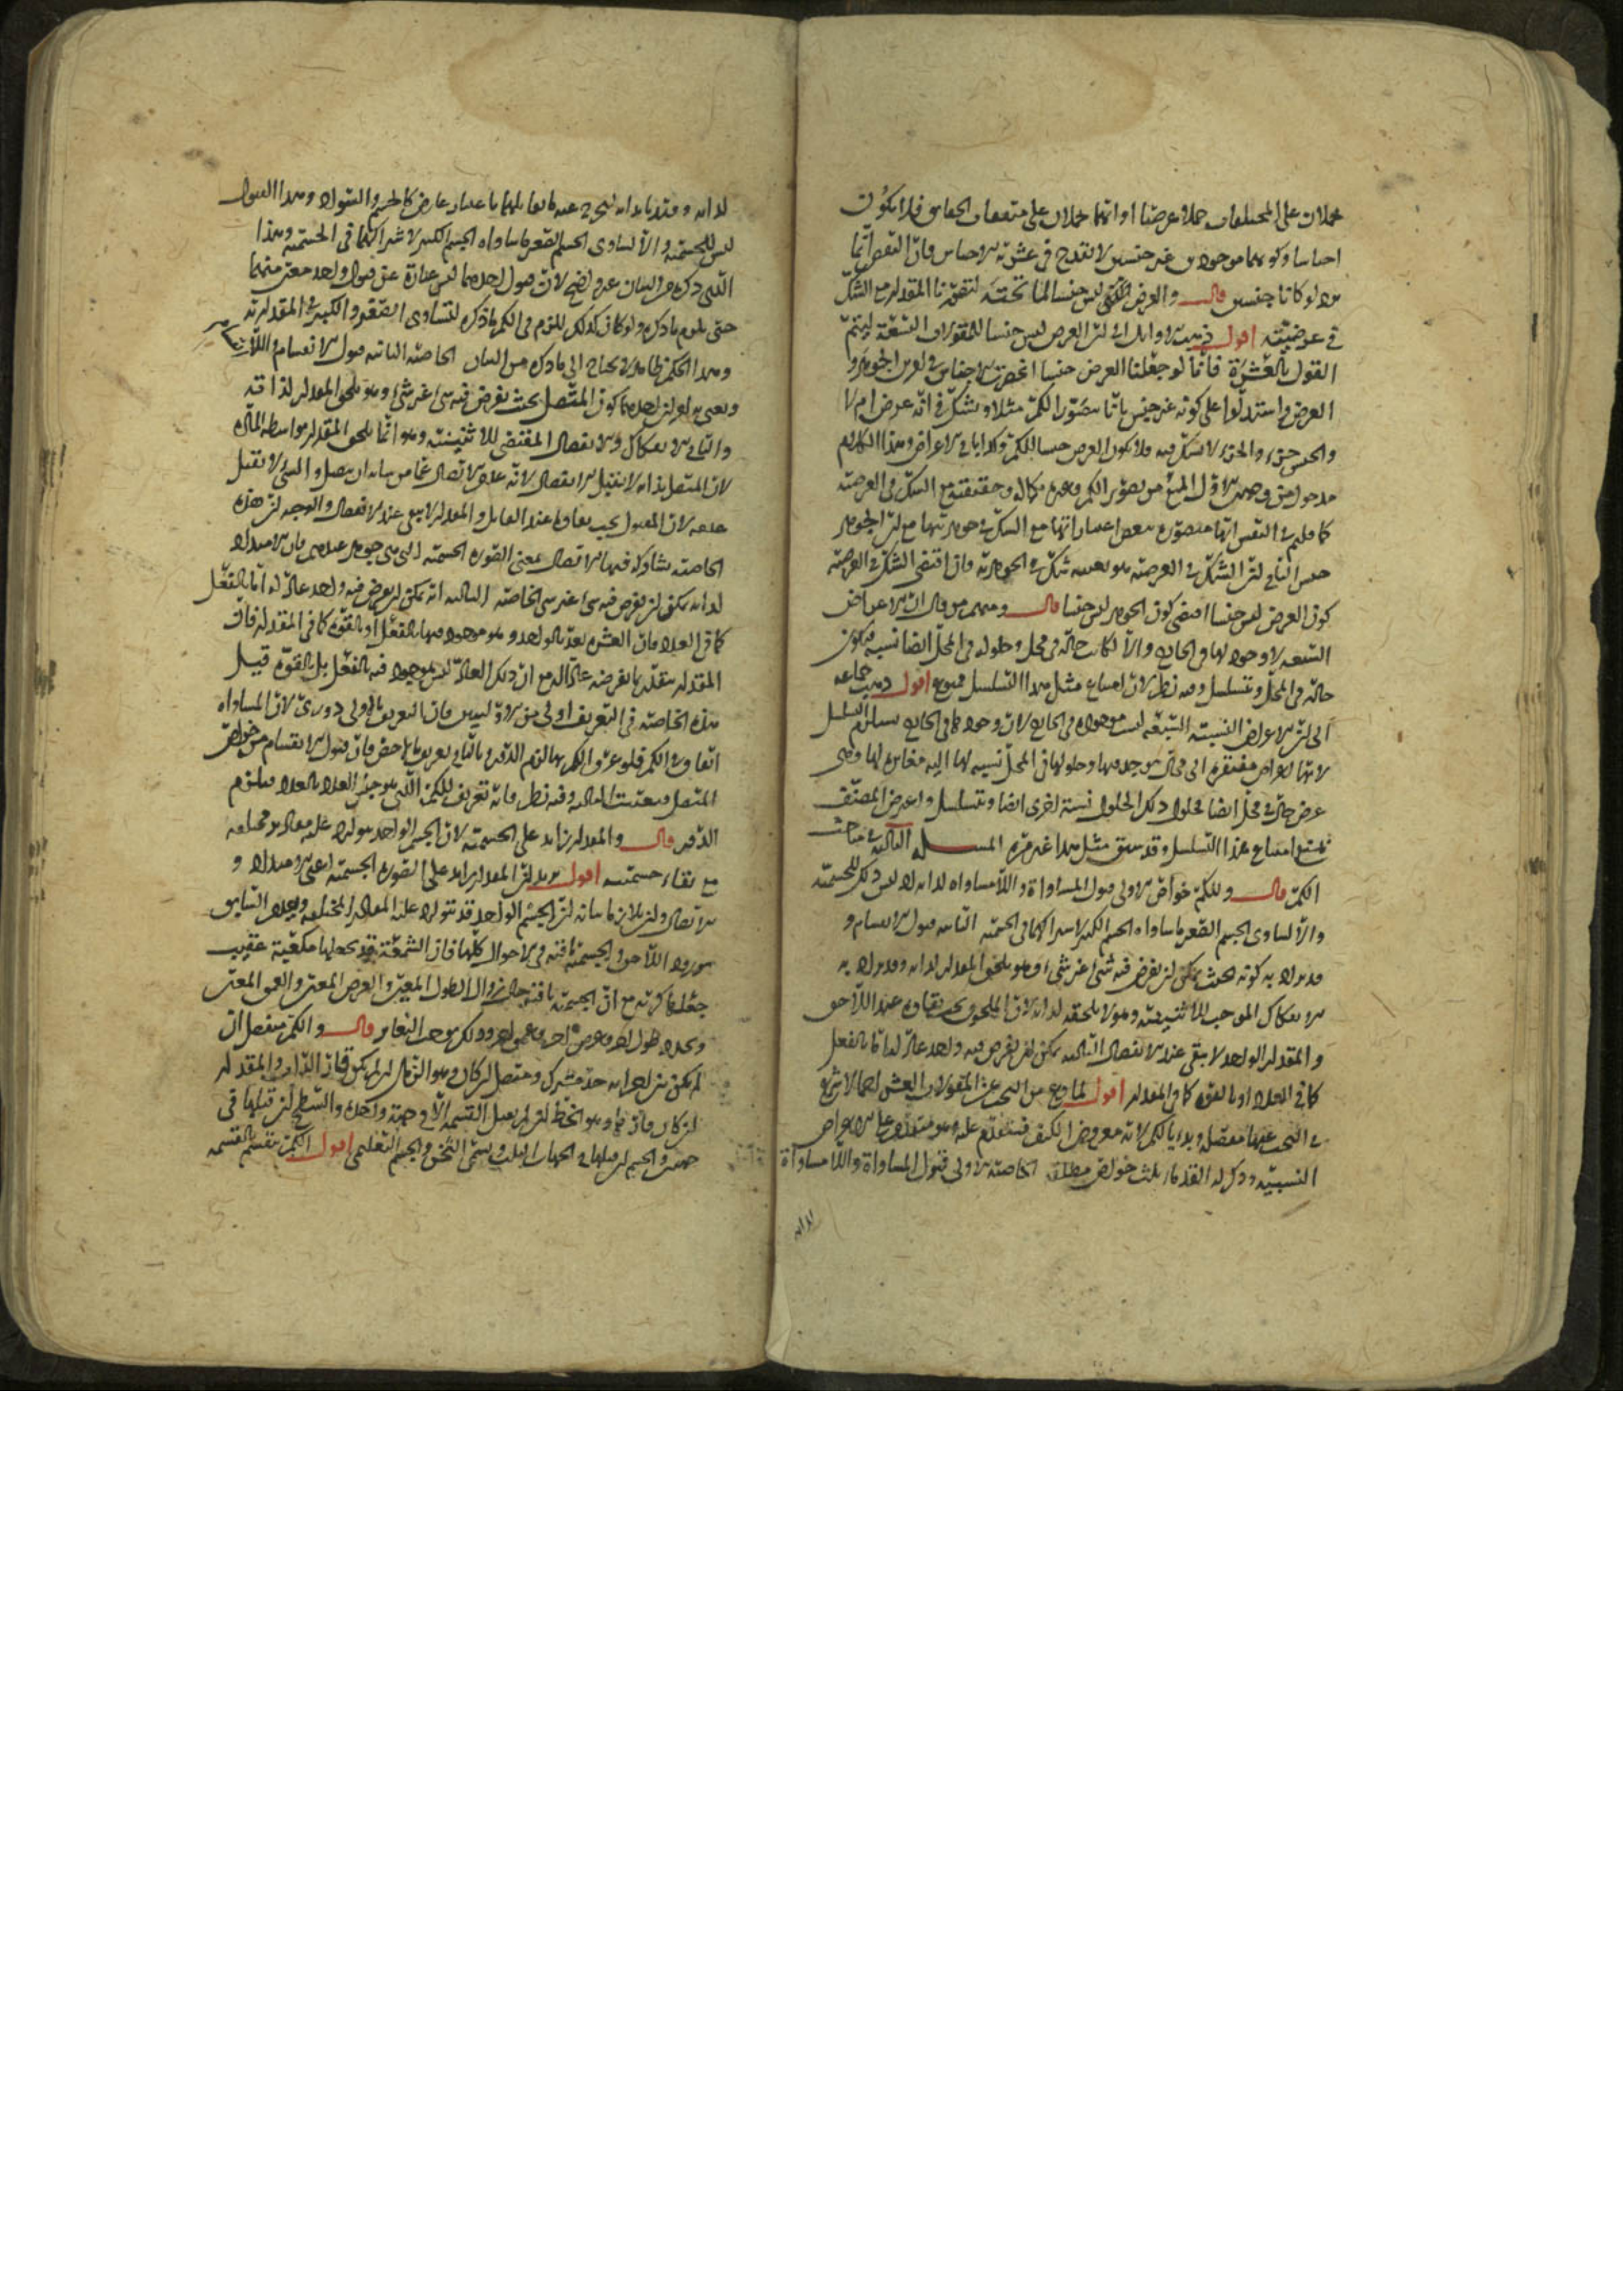 يحملان على المختلفات حملا عرضيا او انهما يحملان على متفقات الحقايق فلا يكون
اجناسا وكونهما موجودين غير جنسين لا يقدح في عشرية الاجناس فان النقض انما
يرد لو كانا جنسين قال والعرض ليس جنسا لما تحته لتصورنا المقدار مع الشك
في عرضيته اقول ذهب الاوايل الى ان العرض ليس جنسا للمقولات التسعة ليتم
القول بالعشرة فانا لو جعلنا العرض جنسا انحصرت الاجناس في امرين الجوهر و
العرض واستدلوا على كونه غير جنس بانا نتصور الكم مثلا ونشك في انه عرض ام لا
والجنس جزء والجزء لا يشك فيه فلا يكون العرض جنسا للكم وكذا باقي الاعراض وهذا الكلام
مدخول من وجهين الاول المنع من تصور الكم وغيره بكماله وحقيقته مع الشك في العرضية
كما قلتم في النفس انها متصورة ببعض اعتباراتها مع الشك في جوهريتها مع ان الجوهر
جنس الثاني ان الشك في العرضية هو بعينه شك في الجوهرية فان اقتضى الشك في العرضية
كون العرض ليس جنسا اقتضى كون الجوهر ليس جنسا قال ومنهم من قال ان الاعراض
النسبية لا وجود لها في الخارج والا لكانت حالة في محل وحلولها في المحل ايضا نسبة فيكون
حالة في المحل ويتسلسل وفيه نظر لان امتناع مثل هذا التسلسل ممنوع اقول ذهب جماعة
الى ان الاعراض النسبية السبعة ليست موجودة في الخارج لان وجودها في الخارج يستلزم التسلسل
لانها اعراض مفتقرة الى محال توجد فيها وحلولها في المحل نسبة لها اليه مغايرة لها وهي
عرض حال في محل ايضا فحلول ذلك الحلول نسبة اخرى ايضا ويتسلسل واعترض المصنف
بمنع امتناع هذا التسلسل وقد سبق مثل هذا غير مرة المسئلة الثالثة في مباحث
الكم قال وللكم خواص الاولى قبول المساواة واللامساواة لذاته لا وليس ذلك للجسمية
والا لساوى الجسم الصغير ما ساواه الجسم الكبير لاشتراكهما في الجسمية الثانية قبول الانقسام و
قد يراد به كونه بحيث يمكن ان يفرض فيه شيء غير شيء وهو يلحق المقدار لذاته وقد يراد به
الانفكاك الموجب للاثنينية وهو لا يلحقه لذاته لان الملحوق يجب بقاؤه عند اللاحق
والمقدار الواحد لا يبقى عند الانفصال الثالثة يمكن ان يفرض فيه واحد عاد له اما بالفعل
كما في العدد او بالقوة كما في المقدار اقول لما فرغ من البحث عن المقولات العشر اجمالا شرع
في البحث عنها مفصلة وبدا بالكم لانه معروض الكيف فيتقدم عليه وهو متقدم على الاعراض
النسبية وذكر له القدماء ثلث خواص مطلقة الخاصة الاولى قبول المساواة واللامساواة
لذاته
لذاته وقيد بذاته ليخرج عنه ما يقابلهما باعتبار عارض كالجسم والسواد وهذا القبول
ليس للجسمية والا لساوى الجسم الصغير ما ساواه الجسم الكبير لاشتراكهما في الجسمية وهذا
الذي ذكره في البيان غير واضح لان قبول احدهما ليس عبارة عن قبول واحد معين منهما
حتى يلزم ما ذكره ولو كان كذلك للزم في الكم ما ذكره لتساوى الصغير والكبير في المقدارية
وهذا الحكم ظاهر لا يحتاج الى ما ذكره من البيان الخاصة الثانية قبول الانقسام واللا
ونعني به امرين احدهما كون المتصل بحيث يفرض فيه شيء غير شيء وهو يلحق المقدار لذاته
والثاني الانفكاك والانفصال المقتضي للاثنينية وهو انما يلحق المقدار بواسطة المادة
لان المتصل بذاته لا يقبل الانفصال لانه عدم الاتصال عما من شانه ان يتصل والشيء لا يقبل
عدمه لان المقبول يجب بقاؤه عند القابل والمقدار لا يبقى عند الانفصال والوجه ان هذه
الخاصة يشاركه فيها الاتصال بمعنى الصورة الجسمية التي هي جوهر عندهم فان الامتداد
لذاته يمكن ان يفرض فيه شيء غير شيء الخاصة الثالثة انه يمكن ان يفرض فيه واحد عاد له اما بالفعل
كما في العدد فان العشرة يعد بالواحد وهو موجود فيها بالفعل او بالقوة كما في المقدار فان
المقدار يتقدر بما نفرضه عادا له مع ان ذلك العاد ليس بموجود فيه بالفعل بل بالقوة قيل
هذه الخاصة في التعريف اولى من الاوليين فان التعريف بالاولى دوري لان المساواة
اتفاق في الكم فلو عرف الكم بها لزم الدور وبالثاني تعريف بالاخص فان قبول الانقسام من خواص
المتصل فتعينت الثالثة وفيه نظر فانه تعريف للكم الذي هو جنس العدد بالعدد فيلزم
الدور قال والمقدار زايد على الجسمية لان الجسم الواحد يتوارد عليه مقادير مختلفة
مع بقاء جسميته اقول يريد ان المقدار زايد على الصورة الجسمية اعني الامتداد و
الاتصال وان تلازما بيانه ان الجسم الواحد قد يتوارد عليه المقادير المختلفة ويعدم السابق
بورود اللاحق والجسمية باقية في الاحوال كلها فان الشمعة قد نجعلها مكعبة عقيب
جعلها كرية مع ان الجسمية باقية حال زوال الطول المعين والعرض المعين والعمق المعين
وتجدد طول اخر وعرض اخر وعمق اخر وذلك يوجب التغاير قال والكم منفصل ان
لم يكن بين اجزائه حد مشترك ومتصل ان كان وهو الزمان ان لم يكن قار الذات والمقدار
ان كان قارا وهو الخط ان لم يقبل القسمة الا في جهة واحدة والسطح ان قبلها في
جهتين والجسم ان قبلها في الجهات الثلث ويسمى الثخن والجسم التعليمي اقول الكم ينقسم بالقسمة